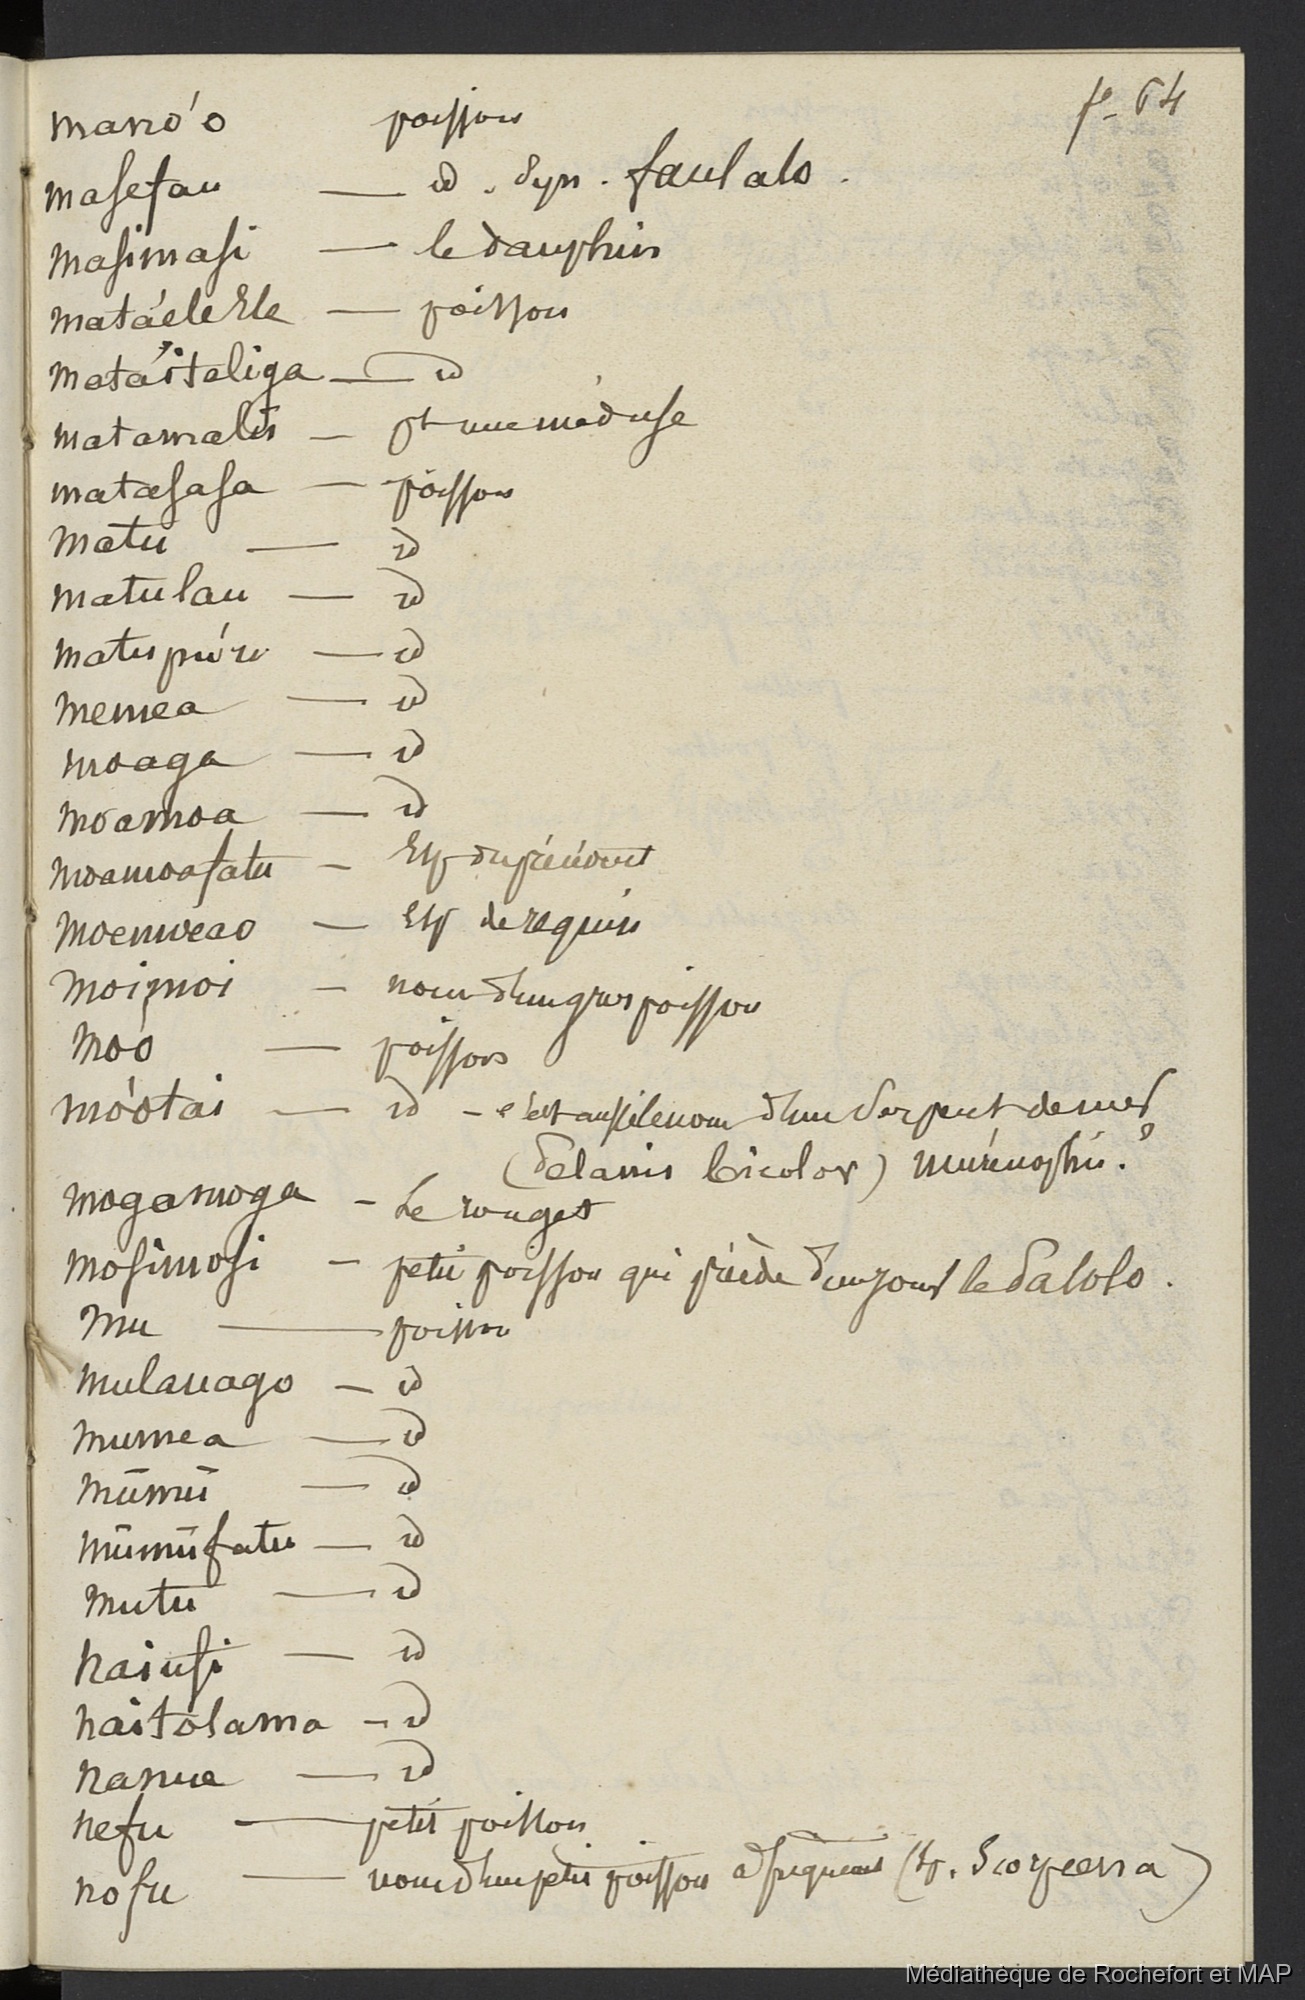 fo 64
mano'o poisson
masefau — id. Syn. faulalo.
masimasi — le dauphin
matá'eleele — poisson
matá'italiga — id
matamalu — pt une méduse
matasasa — poisson
matu — id
matulau — id
matupu'u — id
memea — id
moaga — id
moamoa — id
moamoafatu — Esp du précédent
moemoeao — Esp de requin
moimoi — nom d'un gros poisson
moo — poisson
mo'otai — id — c'est aussi le nom d'un serpent de mer
(Pelamis bicolor) murénophis ?
mogamoga — Le rouget
mosimosi — petit poisson qui précède d'un jour le Palolo.
mu — poisson
mulauago — id
mumea — id
mūmū — id
mūmūfatu — id
mutu — id
naiufi — id
naitolama — id
nanue — id
nefu — petit poisson
nofu — nom d'un petit poisson à piquants (Sp. Scorpœna)
Médiathèque de Rochefort et MAP